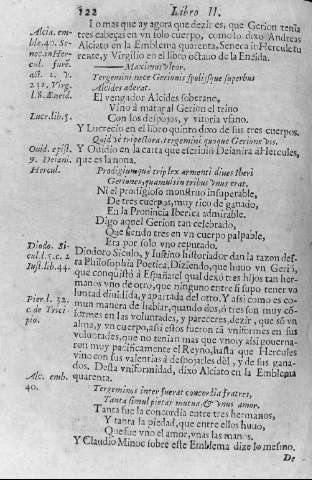 122 Libro II.
Lo mas que ay agora que dezir es, que Gerion tenia
tres cabeças en vn solo cuerpo, como lo dixo Andreas
Alciato en la Emblema quarenta, Seneca in Hercule fu
rente, y Virgilio en el libro octauo de la Eneida.
Alcia. em-
ble. 40. Se-
noc. in Her-
cul. furē.
act. 2. v.
231. Virg.
l.8. Æneid.
Maximus vltor.
Tergemini nece Gerionis spolijsque superbus
Alcides aderat.
El vengador Alcides soberano,
Vino à matar al Gerion el trino
Con los despojos, y vitoria vfano.
Lucr. lib. 5.
Y Lucrecio en el libro quinto dixo de sus tres cuerpos.
Quid ve tripectora, tergemini quoque Gerione vis.
Ouid. epist.
9. Deiani.
Hercul.
Y Ouidio en la carta que escriuiò Deianira à Hercules,
que es la nona.
Prodigiumque triplex armenti diues Iberi
Geriones, quamuis in tribus vnus erat.
Ni el prodigioso monstruo insuperable,
De tres cuerpos, muy rico de ganado,
En la Prouincia Iberica admirable.
Digo aquel Gerion tan celebrado,
Que siendo tres en vn cuerpo palpable,
Era por solo vno reputado.
Diodo. Si-
cul. l. 5. c. 2
Iust. lib. 44.
Diodoro Siculo, y Iustino historiador dan la razon des-
ta Philosophia Poetica, Diziendo, que huuo vn Geriõ,
que conquistò à España, el qual dexò tres hijos tan her-
manos vno de otro, que ninguno entre si supo tener vo
luntad diuidida, y apartada del otro. Y assi como es co-
mun manera de hablar, quando dos, ò tres son muy cõ-
formes en las voluntades, y pareceres, dezir, que sõ vn
alma, y vn cuerpo, assi estos fueron tã vniformes en sus
voluntades, que no tenian mas que vno, y assi gouerna-
ron muy pacificamente el Reyno, hasta que Hercules
vino con sus valentias à despojarles dèl, y de sus gana-
dos. Desta vniformidad, dixo Alciato en la Emblema
quarenta.
Pier. l. 32.
c. de Trici-
pio.
Alc. emb.
40.
Tergeminos inter fuerat concordia fratres,
Tanta simul pietas mutua, & vnus amor.
Tanta fue la concordia entre tres hermanos,
Y tanta la piedad, que entre ellos huuo,
Que fue vno el amor, vnas las manos.
Y Claudio Minoe sobre este Emblema dize lo mesmo.
De